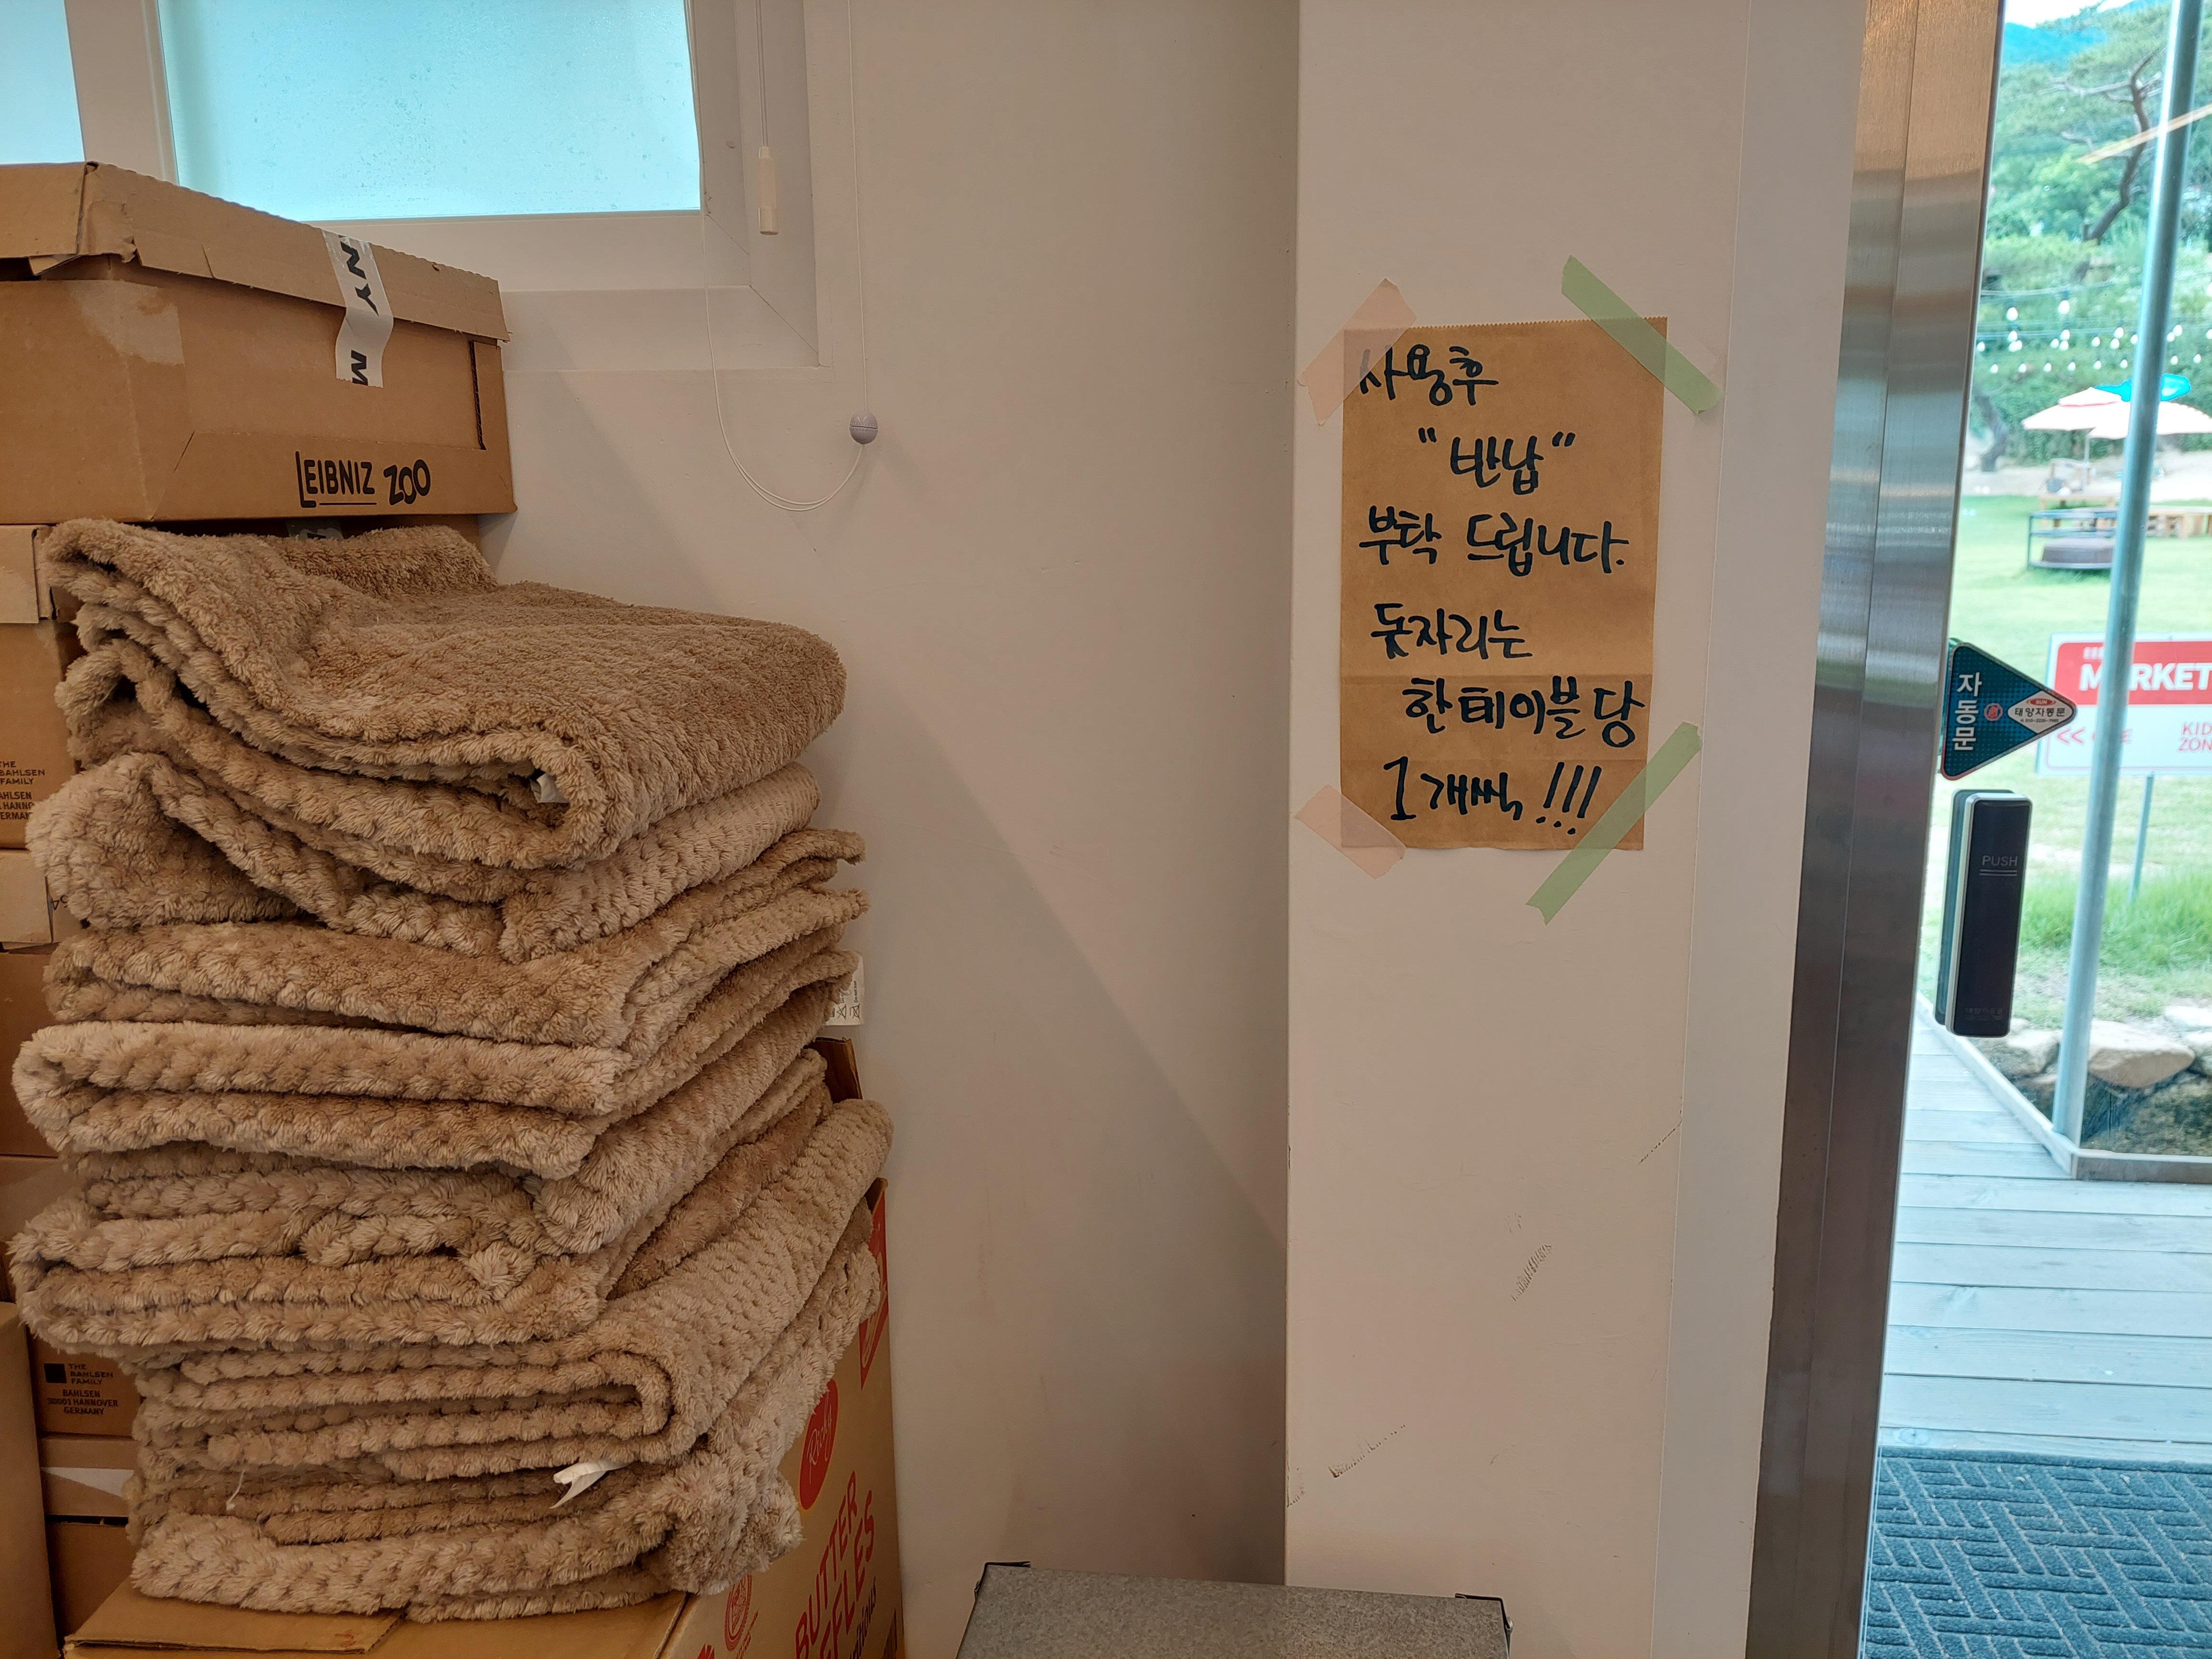 NY M
LEIBNIZ ZOO
THE
BAHLSEN
FAMILY
THE
BAHLSEN
FAMILY
BAHLSEN
30001 HANNOVER
GERMANY
Richy
BUTTER
사용후
"반납"
부탁 드립니다.
돗자리는
한 테이블 당
1개씩!!!
자동문
태양자동문
PUSH
MARKET
<<
KID
ZON